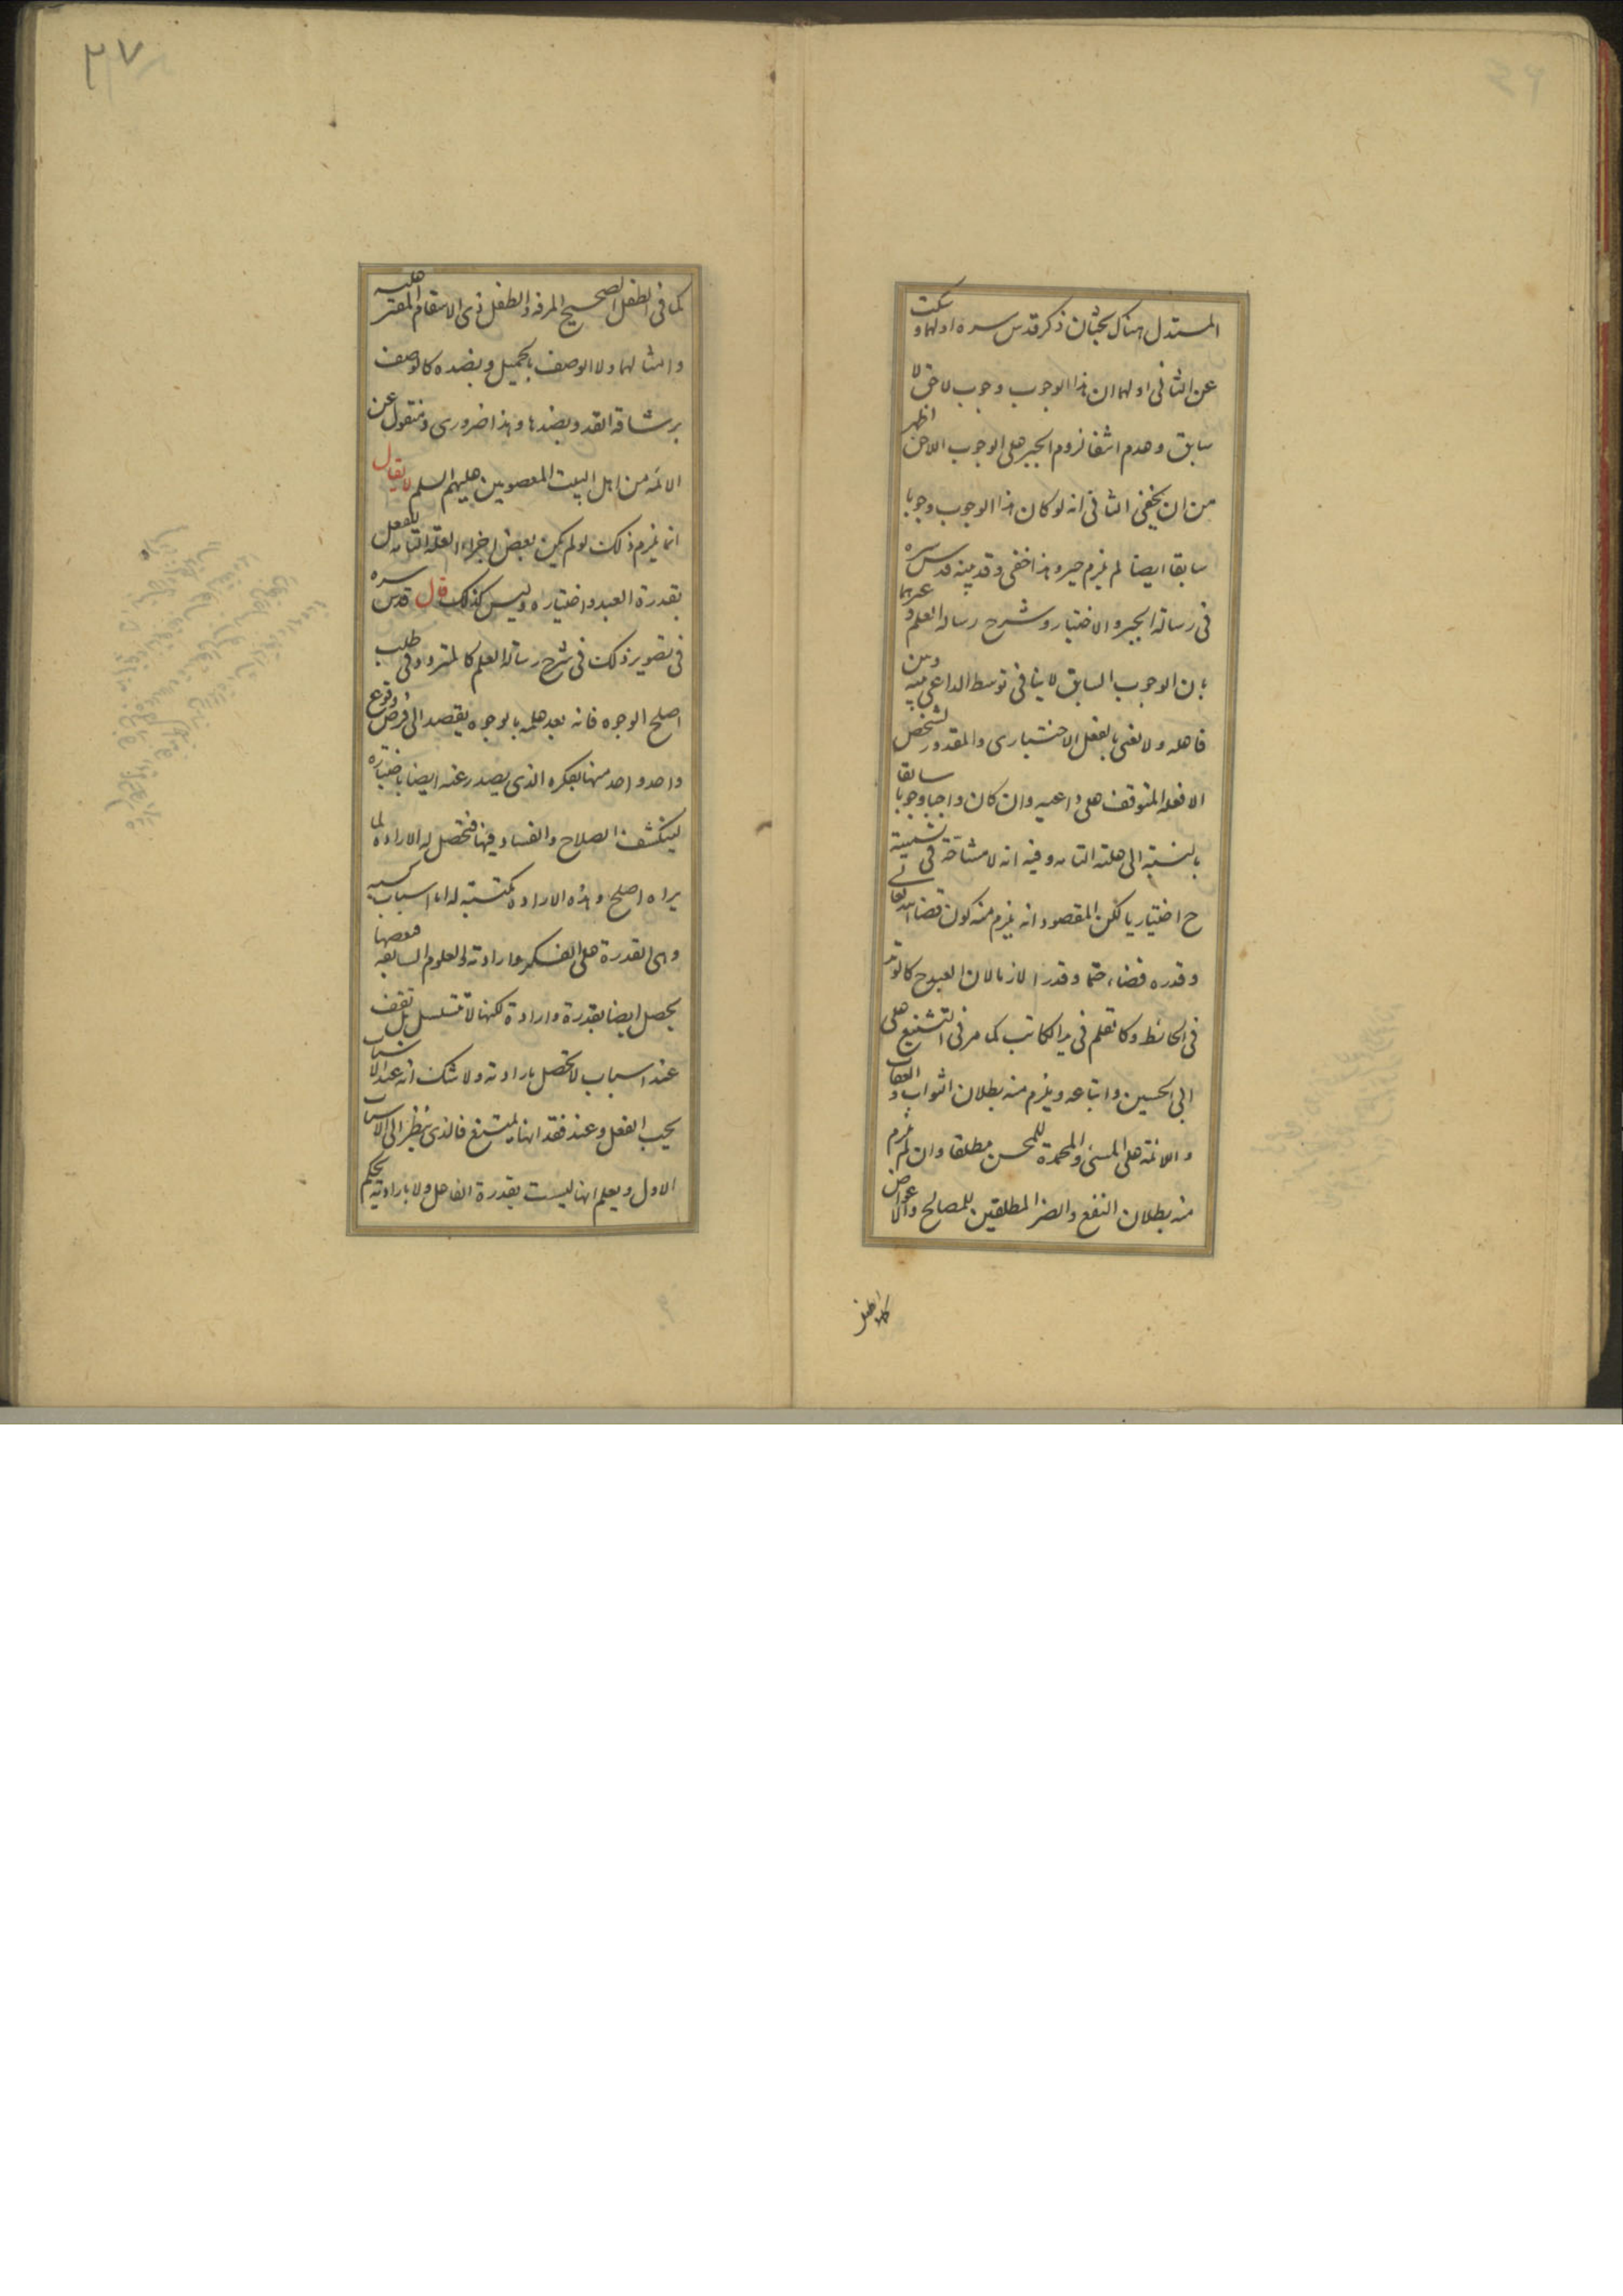 المستدل هناك بحثان ذكر قدس سره اولهما وسكت
عن الثانى اولهما ان هذا الوجوب وجوب لاحق لا
سابق وعدم اشفا لزوم الجبر على الوجوب اللاحق اظهر
من ان يخفى الثانى انه لو كان هذا الوجوب وجوبا
سابقا ايضا لم يلزم جبر وهذا خفى وقد بينه قدس سره
فى رسالة الجبر والاختيار وشرح رسالة العلم وغيرهما
بان الوجوب السابق لا ينافى توسط الداعى بينه وبين
فاعله ولا نعنى بالفعل الاختيارى والمقدور لشخص
الا فعله المتوقف على داعيه وان كان واجبا وجوبا سابقا
بالنسبة الى علته التامه وفيه انه لا مشاحة فى تسميته
ح اختياريا لكن المقصود انه يلزم منه كون قضاء الله تعالى
وقدره قضاء حتما وقدرا لازما لان العبد ح كالوتد
فى الحائط وكالقلم فى يد الكاتب كما مر فى التشنيع على
ابى الحسين واتباعه ويلزم منه بطلان الثواب والعقاب
واللائمة على المسئ والمحمدة للمحسن مطلقا وان لم يلزم
منه بطلان النفع والضر المطلقين للمصالح والاعواض
كما فى الطفل
كما فى الطفل الصحيح المرفه والطفل ذى الاسقام المقتر عليه
وامثالهما ولا الوصف بالجميل وبضده كالوصف
برشاقة القد وبضدها وهذا ضرورى ومنقول عن
الائمة من اهل البيت المعصومين عليهم السلم لا يقال
انما يلزم ذلك لو لم يكن بعض اجزاء العلة التامه للفعل
بقدرة العبد واختياره وليس كذلك قال قدس سره
فى تصوير ذلك فى شرح رسالة العلم كالمتردد فى طلب
اصلح الوجوه فانه بعد علمه بالوجوه يقصد الى فرض وقوع
واحد واحد منها بفكره الذى يصدر عنه ايضا باختياره
لينكشف الصلاح والفساد فيها فتحصل له الارادة لما
يراه اصلح وهذه الارادة مكتسبة له اما اسباب كسبه
وهى القدرة على الفكر وارادته والعلوم السابقه فبعضها
يحصل ايضا بقدرة وارادة لكنها لا تتسلسل بل تقف
عند اسباب لا تحصل بارادته ولا شك انه عند الاسباب
يجب الفعل وعند فقدانها يمتنع فالذى ينظر الى الاسباب
الاول ويعلم انها ليست بقدرة الفاعل ولا بارادته يحكم